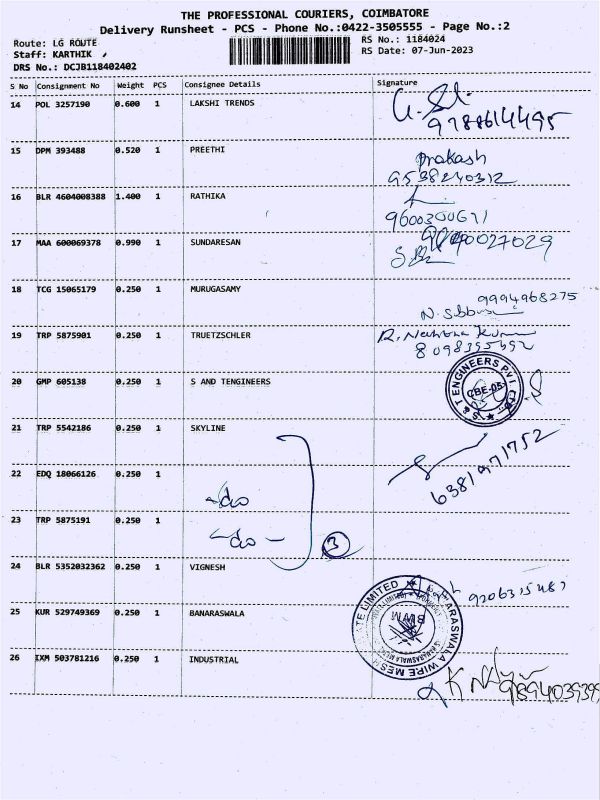 THE PROFESSIONAL COURIERS, COIMBATORE
Delivery Runsheet - PCS - Phone No.:0422-3505555 - Page No.:2
Route: LG ROUTE
Staff: KARTHIK
DRS No.: DCJB118402402
RS No.: 1184024
RS Date: 07-Jun-2023
S No Consignment No Weight PCS Consignee Details Signature
14 POL 3257190 0.600 1 LAKSHI TRENDS
9788614495
15 DPM 393488 0.520 1 PREETHI
Prakash
9538240312
16 BLR 4604008388 1.400 1 RATHIKA
9600300671
17 MAA 600069378 0.990 1 SUNDARESAN
18 TCG 15065179 0.250 1 MURUGASAMY
9994968275
19 TRP 5875901 0.250 1 TRUETZSCHLER
8098395592
20 GMP 605138 0.250 1 S AND TENGINEERS
S & T ENGINEERS PVT. LTD.
CBE-05
21 TRP 5542186 0.250 1 SKYLINE
6381971752
22 EDQ 18066126 0.250 1
-do
23 TRP 5875191 0.250 1
-do-
3
24 BLR 5352032362 0.250 1 VIGNESH
25 KUR 529749369 0.250 1 BANARASWALA
BANARASWALA WIRE MESH
LIMITED
BWM
26 IXM 503781216 0.250 1 INDUSTRIAL
9894039399